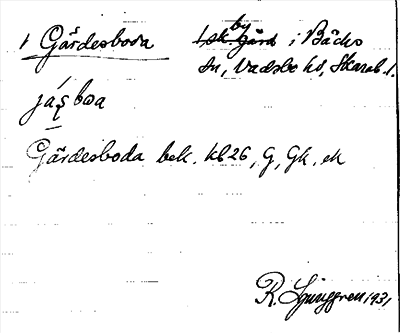 1 Gärdesboda by i Bäcks
sn, Vadsbo hd, Skarab. l.
jásboa
Gärdesboda bek. kb 26, G, Gk, ek
R. Ljunggren 1931